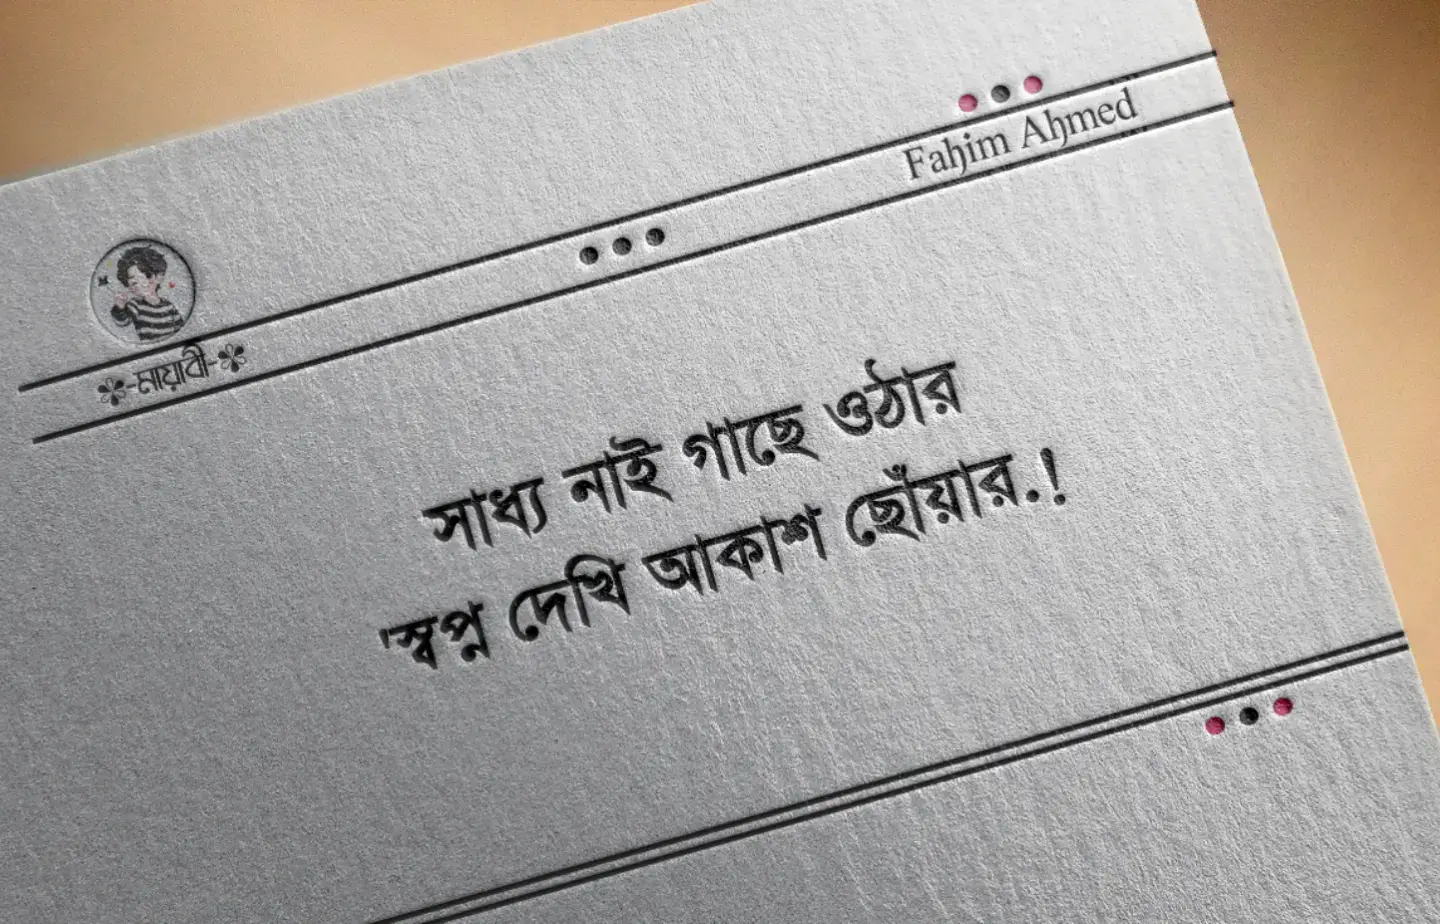 Faḥim Aḥmed
-মায়াবী-
সাধ্য নাই গাছে ওঠার
'স্বপ্ন দেখি আকাশ ছোঁয়ার.!